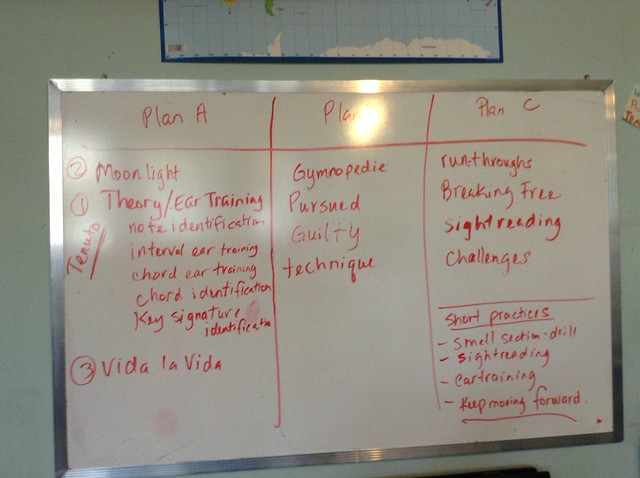 Plan A
② Moonlight
① Theory/Ear Training
Tenuto
note identification
interval ear training
chord ear training
chord identification
Key signature
identification
③ Vida la Vida
Plan
Gymnopedie
Pursued
Guilty
technique
Plan C
run-throughs
Breaking Free
sightreading
Challenges
Short practices
- Small section-drill
- sightreading
- eartraining
- Keep moving forward.